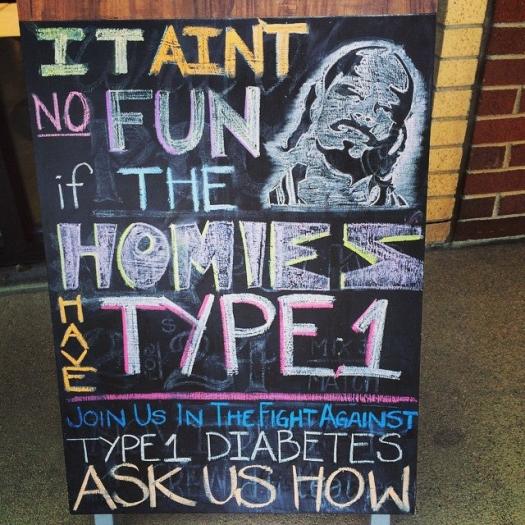 IT AINT
NO FUN
if THE
HOMIES
HAVE TYPE 1
JOIN US IN THE FIGHT AGAINST
TYPE 1 DIABETES
ASK US HOW